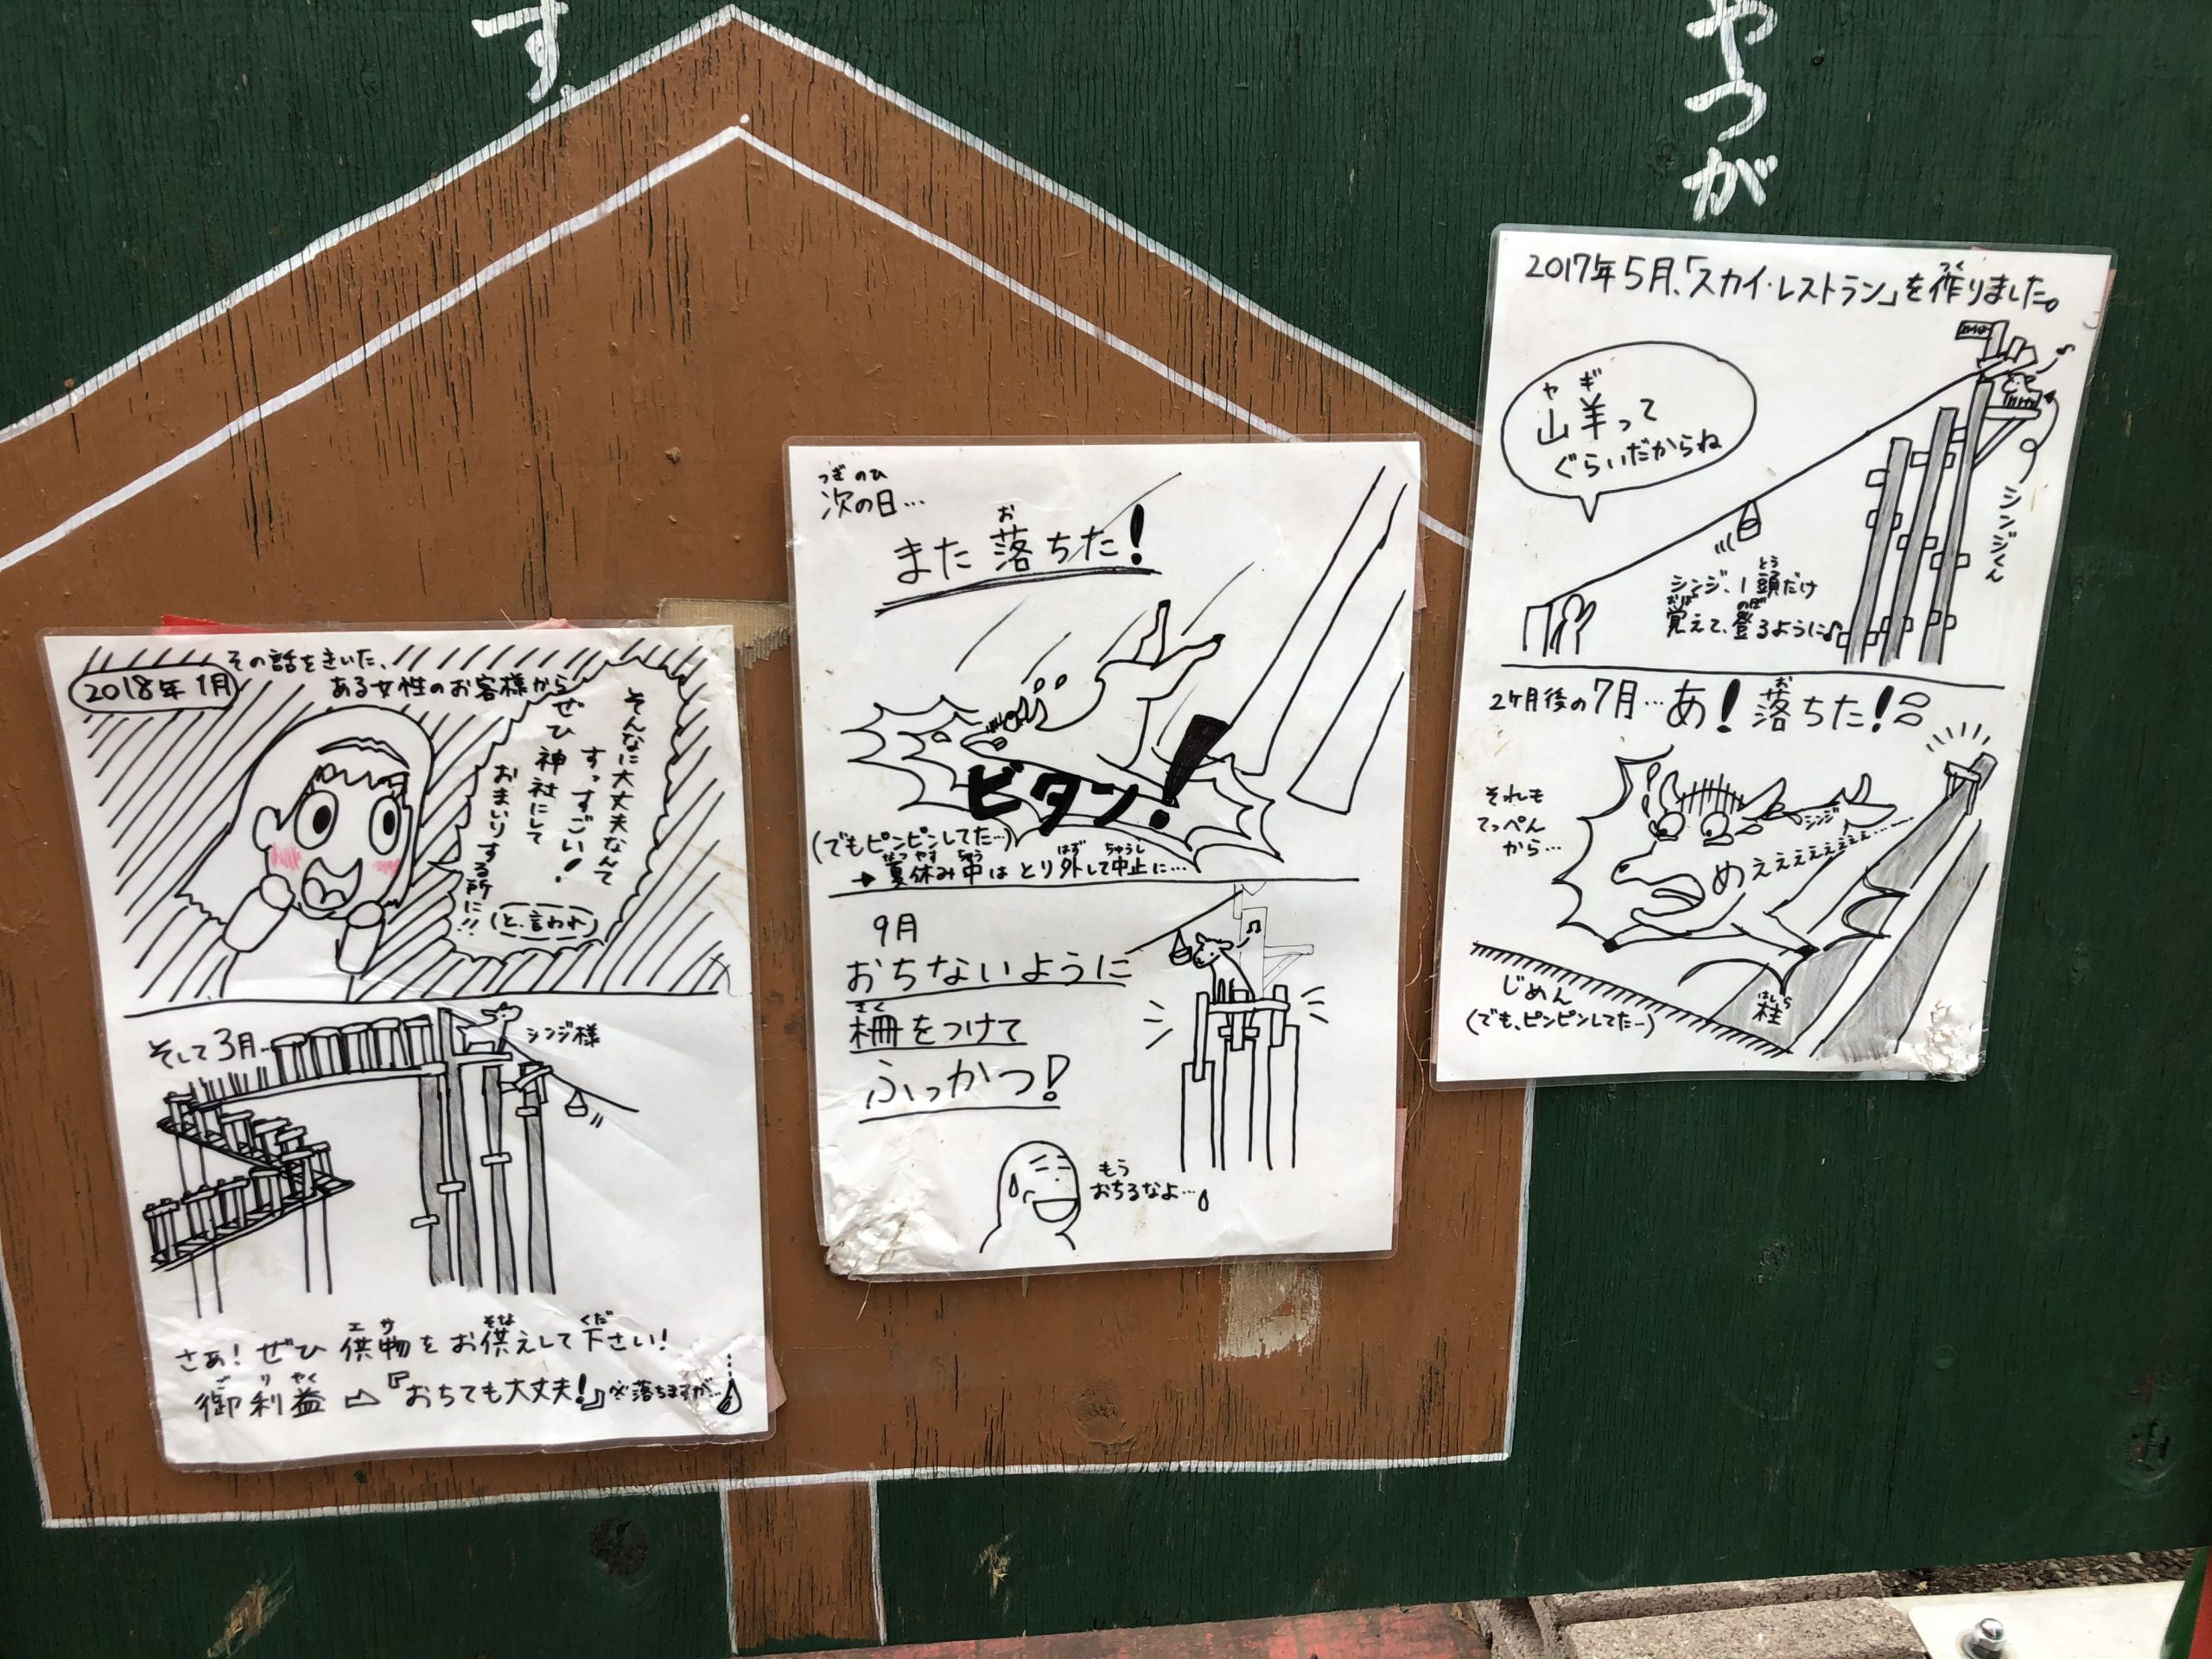 す。
やつが
2017年5月、「スカイ・レストラン」を作りました。
つく
ヤギ
山羊って
ぐらいだからね
シンジくん
シンジ、1頭だけ
とう
覚えて、登るように♪
おぼ
のぼ
2ヶ月後の7月…あ！落ちた！
お
それも
てっぺん
から…
シンジ
めえぇぇぇぇぇぇ…
じめん
(でも、ピンピンしてた…)
はしら
柱
つぎのひ
次の日…
お
また落ちた！
ビタン！
(でもピンピンしてた…)
なつやす ちゅう はず ちゅうし
→夏休み中はとり外して中止に…
9月
おちないように
さく
柵をつけて
ふっかつ！
もう
おちるなよ…
2018年1月
その話をきいた、
ある女性のお客様から
そんなに大丈夫なんて
すっすごい！
ぜひ神社にして
おまいりする所に!!
(と、言われ)
そして3月…
シンジ様
エサ そな くだ
さあ！ぜひ供物をお供えして下さい！
ごりやく
御利益⇨『おちても大丈夫！』※落ちますが…